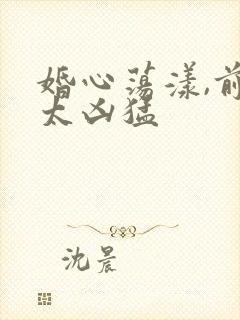 婚心荡漾,前
太凶猛
沈晨